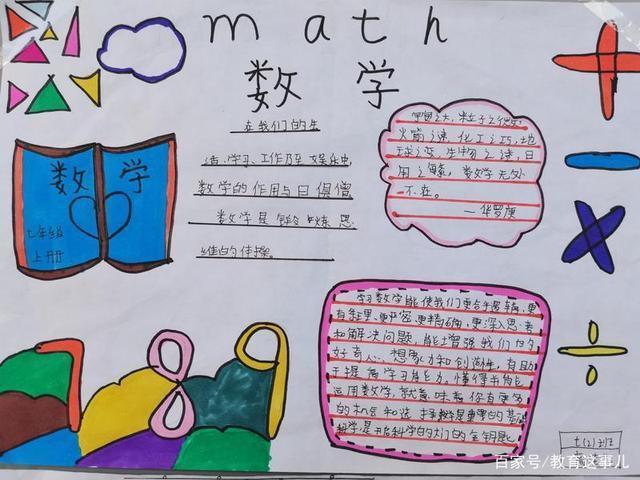 math
数学
在我们的生
活、学习、工作乃至娱乐中,
数学的作用与日俱僧
数学是锻炼思
维的体操。
宇宙之大,粒子之微,
火箭之速,化工之巧,地
球之变,生物之谜,日
用之繁,数学无处
不在。
—华罗庚
数学
七年级
上册
学习数学能使我们更合乎逻辑、更
有条理、更严密、更精确、更深入思考
和解决问题,能增强我们的
好奇心、想象力和创造性,有助
于掌握学习能力,懂得书
运用数学,就意味着你有更多
的机会和选择数学是重要的基础
科学,是开启科学的大门的金钥匙
七(2)班
百家号/教育这事儿